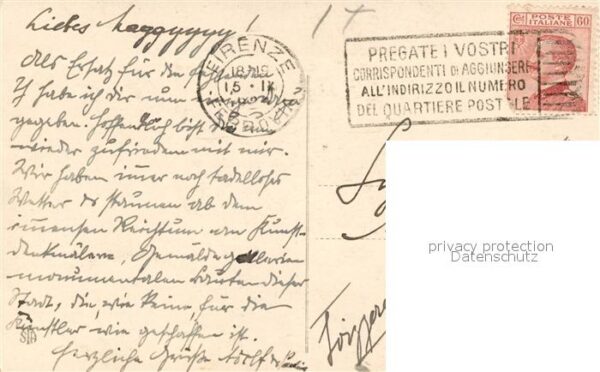 Liebes Maggyyyyy!
Als Ersatz für die
Y habe ich dir nun
gegeben. Hoffentlich bist du
wieder zufrieden mit mir.
Wir haben immer noch tadelloses
Wetter & staunen ab dem
immensen Reichtum an Kunst-
denkmälern, Gemäldegallerien
monumentalen Bauten dieser
Stadt, die, wie keine, für die
Künstler wie geschaffen ist.
Herzliche Grüsse Adolf
FIRENZE
FERROVIA
18-19
15·IX
PREGATE I VOSTRI
CORRISPONDENTI DI AGGIUNGERE
ALL'INDIRIZZO IL NUMERO
DEL QUARTIERE POSTALE
POSTE
ITALIANE
60
Svizzera
privacy protection
Datenschutz